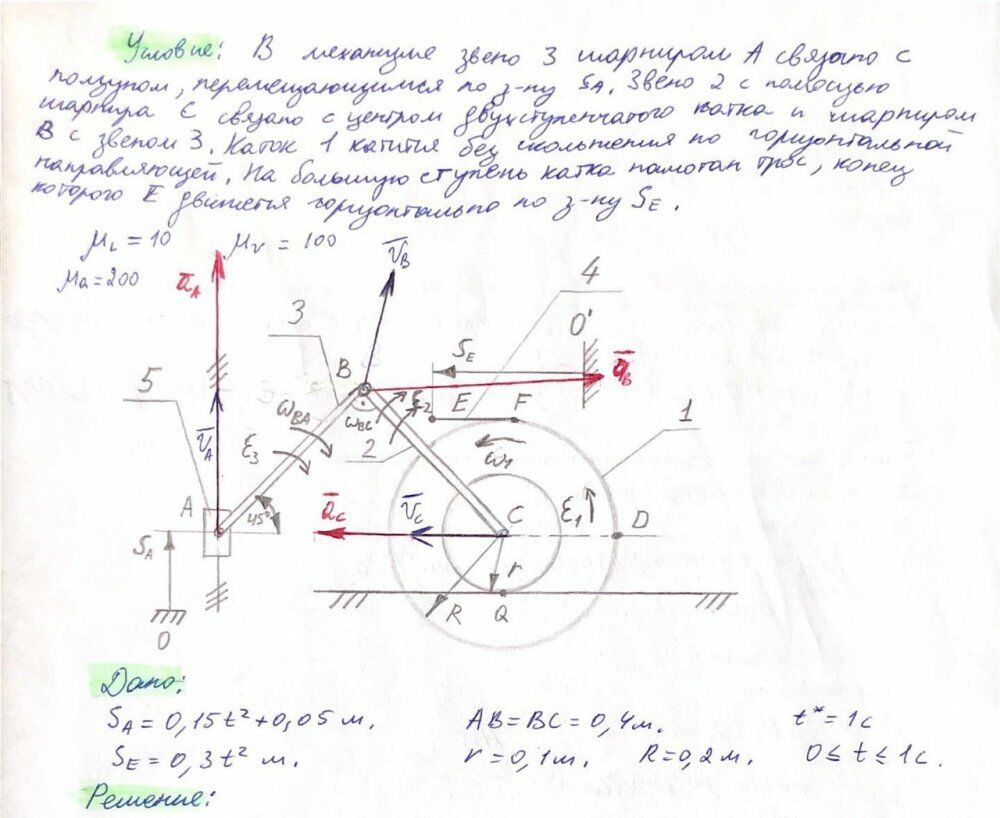 Условие: В механизме звено 3 шарниром А связано с
ползуном, перемещающимся по з-ну SA. Звено 2 с помощью
шарнира С связано с центром двухступенчатого катка и шарниром
В с звеном 3. Каток 1 катится без скольжения по горизонтальной
направляющей. На большую ступень катка намотан трос, конец
которого Е движется горизонтально по з-ну SE.
μL = 10 μv = 100
μa = 200
āA
v̄B
4
3
O'
SE
B
āB
5
ωBA
ωBC
ε2
E
F
1
v̄A
ε3
2
ω1
A
45°
āC
v̄C
C
ε1
D
SA
r
R
Q
O
Дано:
SA = 0,15t² + 0,05 м. AB = BC = 0,4 м. t* = 1с
SE = 0,3t² м. r = 0,1 м. R = 0,2 м. 0 ≤ t ≤ 1с.
Решение: